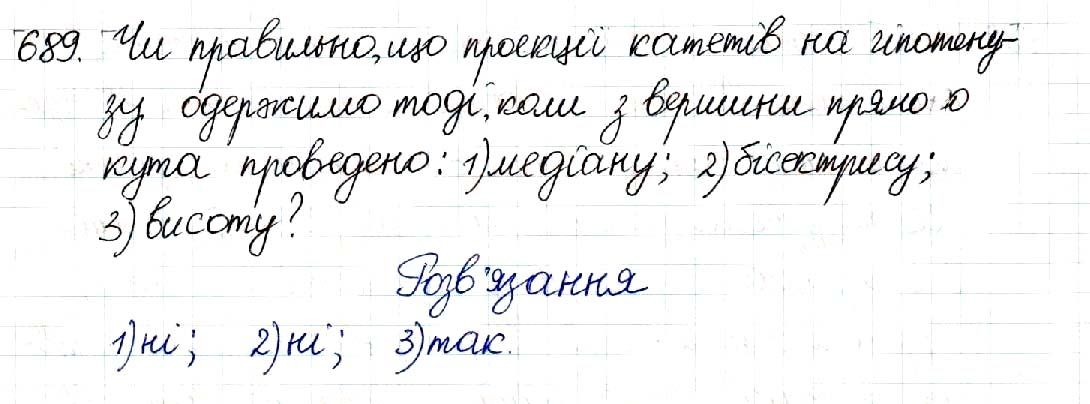 689. Чи правильно, що проекції катетів на гіпотену-
зу одержимо тоді, коли з вершини прямого
кута проведено: 1) медіану; 2) бісектрису;
3) висоту?
Розв'язання
1) ні; 2) ні; 3) так.